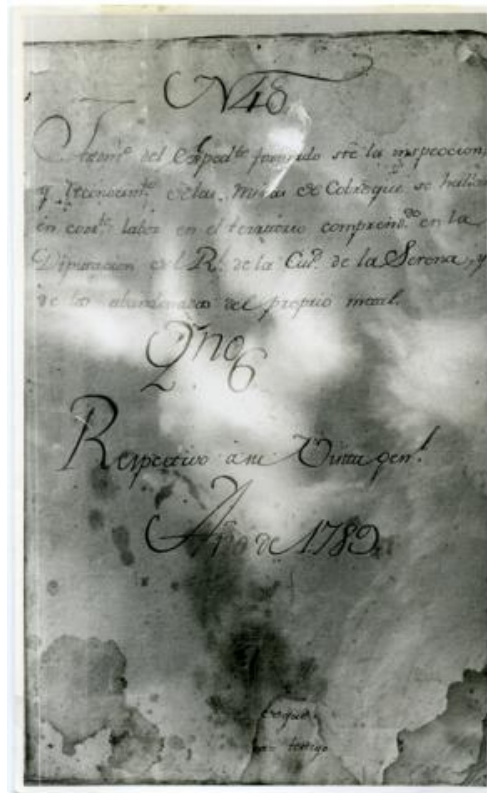 N 48
Testim.º del Exped.te formado sre. la inspeccion,
y reconocim.to de las Minas de Cobre que se hallan
en corr.te labor en el territorio comprend.do en la
Diputacion del R.l de la Ciu.d de la Serena, y
de las abandonadas del proprio metal.
Q.no 6
2
Respectivo a su Visita gen.l
Año de 1789
testigo